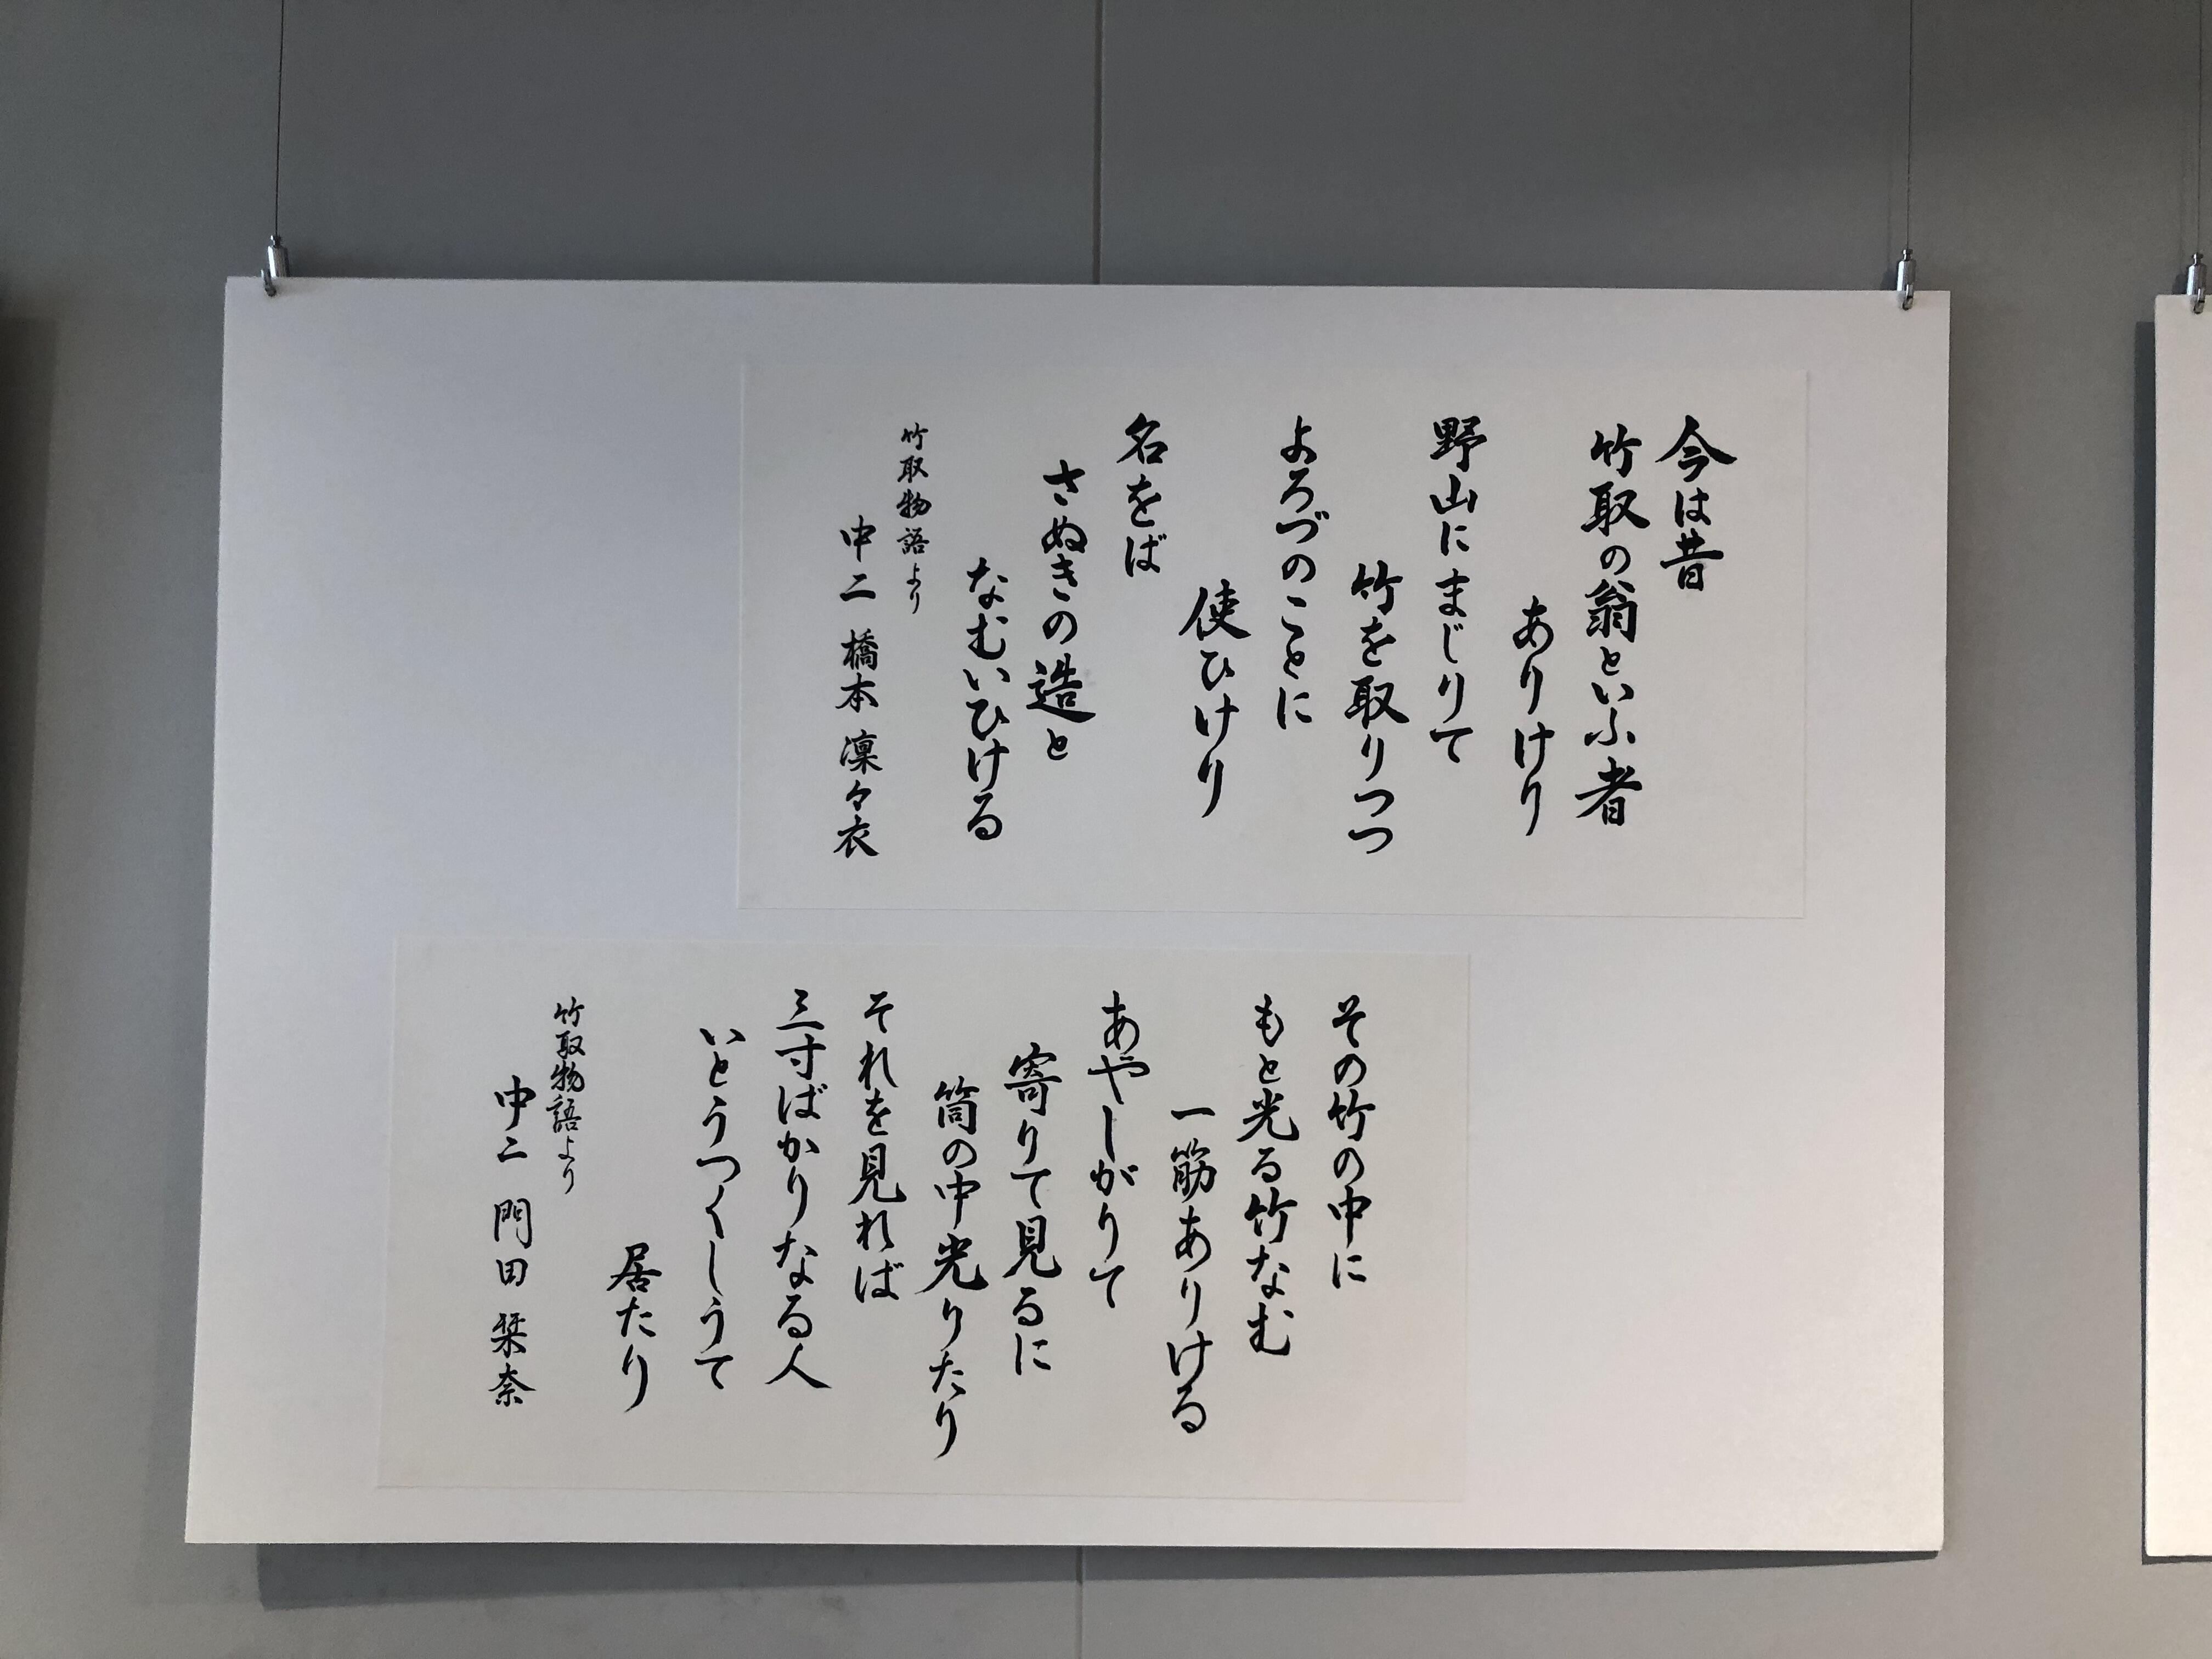 今は昔
竹取の翁といふ者
ありけり
野山にまじりて
竹を取りつつ
よろづのことに
使ひけり
名をば
さぬきの造と
なむいひける
竹取物語より
中二 橋本 凜々衣
その竹の中に
もと光る竹なむ
一筋ありける
あやしがりて
寄りて見るに
筒の中光りたり
それを見れば
三寸ばかりなる人
いとうつくしうて
居たり
竹取物語より
中二 門田 栞奈